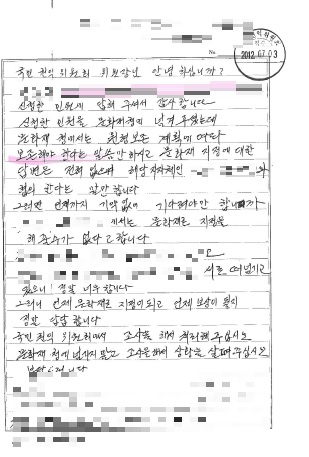 No
2012. 07. 03
국민 권익 위원회 위원장님 안녕 하십니까?
신청한 민원에 답해 주셔서 감사 합니다
신청한 민원을 문화재청에 넘겨 주었는데
문화재 청에서는 원형보존 계획에 있다
보존해야 한다는 말씀만 하시고 문화재 지정에 대한
답변은 전혀 없으며 해당자치체인 와
협의 한다는 말만 합니다
그러면 언제까지 기약 없이 기다려야만 합니까
에서는 문화재로 지정을
해 줄수가 없다고 합니다
서로 떠넘기고
있으니 정말 너무 합니다
그러니 언제 문화재로 지정이 되고 언제 보상이 될지
정말 답답 합니다
국민 권익 위원회에서 조사를 해서 처리해 주십시오
문화재 청에 넘기지 말고 조사를 해서 상황을 살펴 주십시오